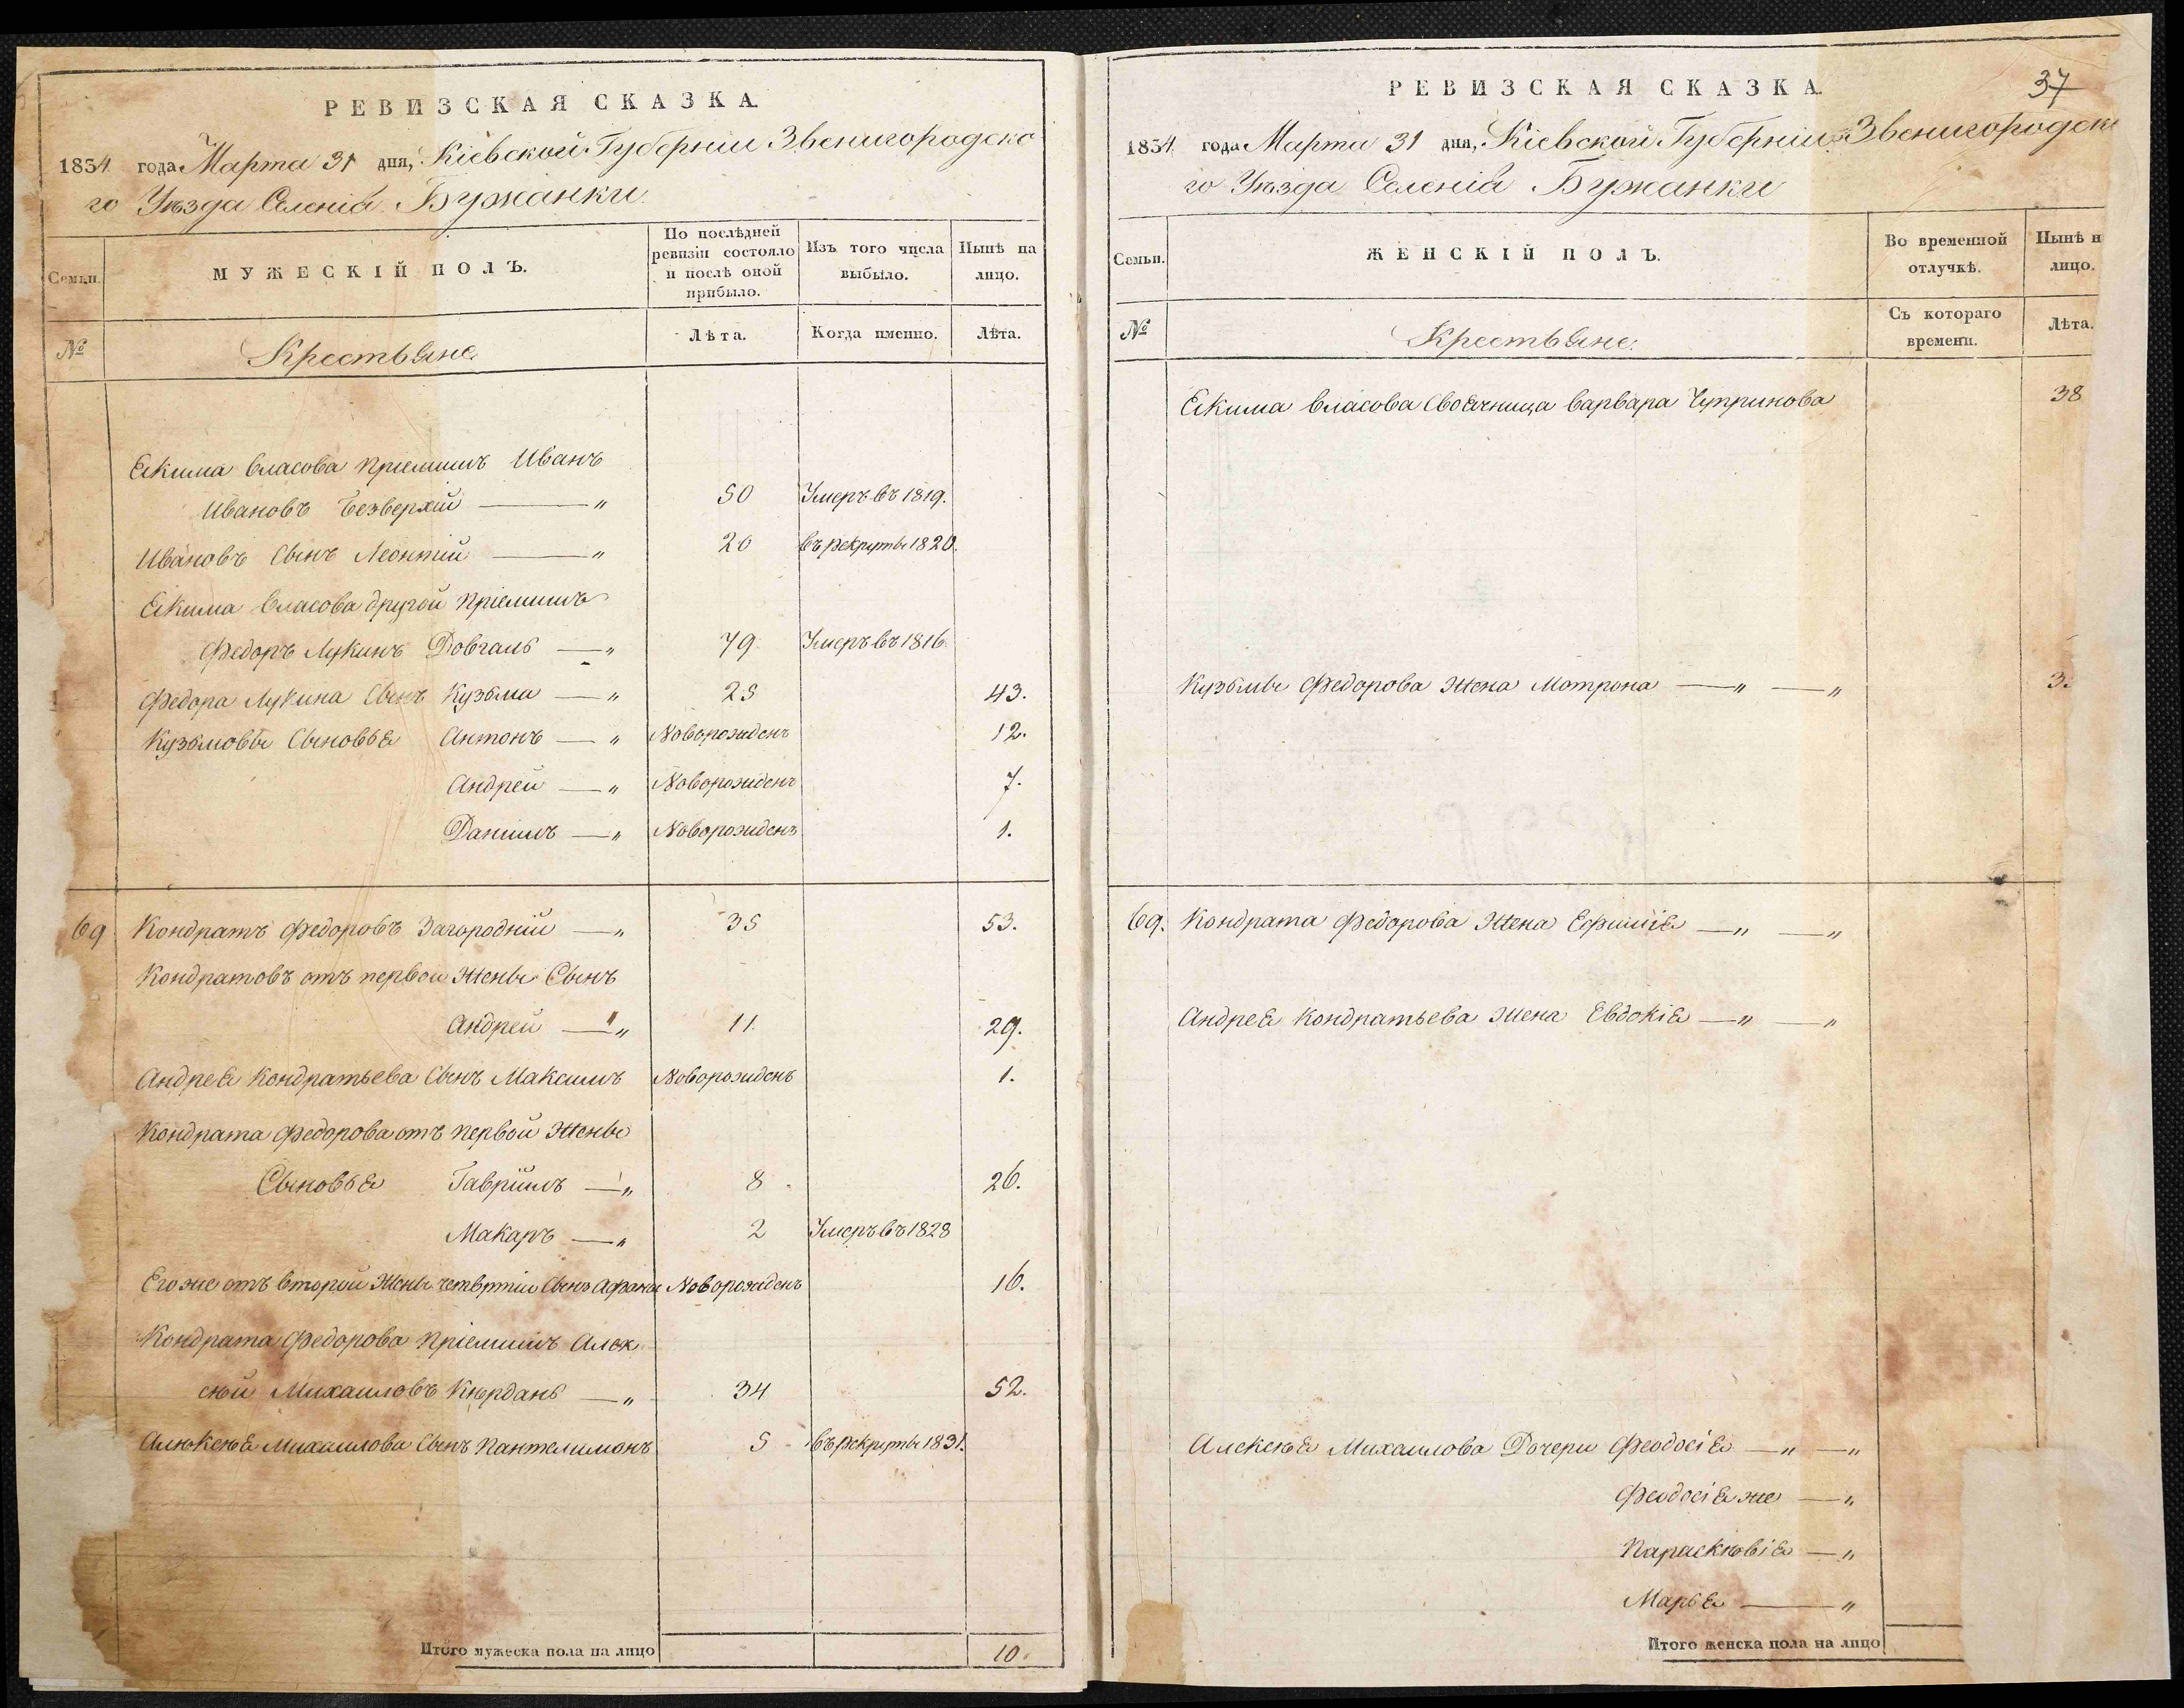 РЕВИЗСКАЯ СКАЗКА.
1834 года Марта 31 дня, Кіевской Губерніи Звенигородско
го Уѣзда Селенія Бужанки
Семьи.
МУЖЕСКІЙ ПОЛЪ.
По послѣдней ревизіи состояло и послѣ оной прибыло.
Изъ того числа выбыло.
Нынѣ на лицо.
№
Крестьяне
Лѣта.
Когда именно.
Лѣта.
Екима Власова пріемышъ Иванъ
Ивановъ Безверхій — „ 50 Умеръ въ 1819.
Ивановъ Сынъ Леонтій — „ 20 въ рекруты 1820.
Екима Власова другой пріемышъ
Федоръ Лукинъ Довгаль — „ 79 Умеръ въ 1816
Федора Лукина Сынъ Кузьма — „ 25 43.
Кузьмовы Сыновья Антонъ — „ Новорожденъ 12.
Андрей — „ Новорожденъ 7.
Даніилъ — „ Новорожденъ 1.
69 Кондратъ Федоровъ Загородній — „ 35 53.
Кондратовъ отъ первой жены Сынъ
Андрей — „ 11. 29.
Андрея Кондратьева Сынъ Максимъ Новорожденъ 1.
Кондрата Федорова отъ первой жены
Сыновья Гавріилъ — „ 8 26.
Макаръ — „ 2 Умеръ въ 1828
Его же отъ второй жены четвртій Сынъ Афан Новорожденъ 16.
Кондрата Федорова пріемышъ Алек
сѣй Михаиловъ Кюрдань — „ 34 52.
Алѣксѣя Михаилова Сынъ Пантелимонъ 5 въ рекруты 1831.
Итого мужеска пола на лицо 10.
РЕВИЗСКАЯ СКАЗКА.
37
1834 года Марта 31 дня, Кіевской Губерніи Звенигородск
го Уѣзда Селенія Бужанки
Семьи.
ЖЕНСКІЙ ПОЛЪ.
Во временной отлучкѣ.
Нынѣ н лицо.
№
Крестьяне.
Съ котораго времени.
Лѣта.
Екима Власова Своячница Варвара Чупринова 38
Кузьмы Федорова жена Мотрона — „ — „ 3
69. Кондрата Федорова жена Ефимія — „ — „
Андрея Кондратьева жена Евдокія — „ — „
Алексѣя Михаилова Дочери Феодосія — „ — „
Феодосія же — „
Параскѣвія — „
Марья — „
Итого женска пола на лицо